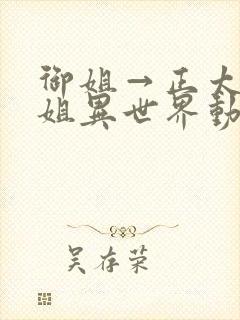 御姐→正太
姐異世界動
吴存荣